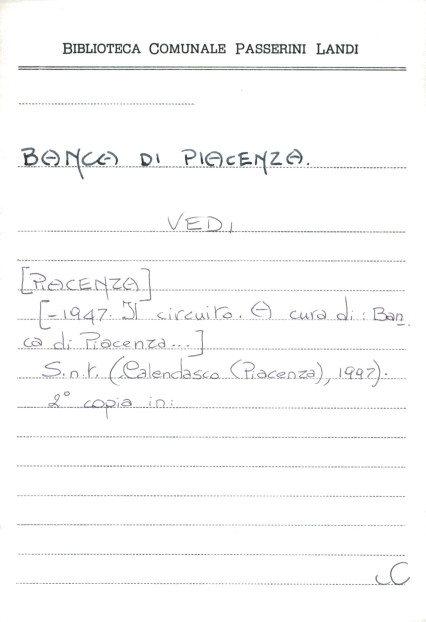 BIBLIOTECA COMUNALE PASSERINI LANDI
BANCA DI PIACENZA.
VEDI
[PIACENZA]
[-1947. Il circuito. A cura di: Ban
ca di Piacenza...]
S.n.t. (Calendasco (Piacenza), 1997).
2° copia in:
C